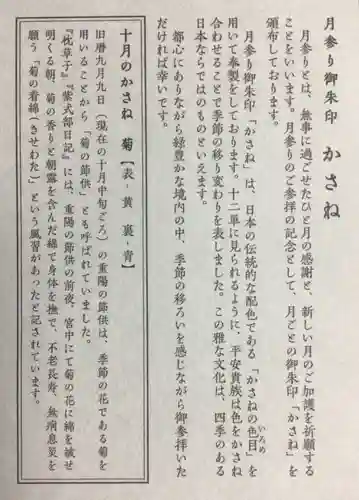 月参り御朱印 かさね
月参りとは、無事に過ごせたひと月の感謝と、新しい月のご加護を祈願する
ことをいいます。月参りのご参拝の記念として、月ごとの御朱印「かさね」を
頒布しております。
月参り御朱印「かさね」は、日本の伝統的な配色である「かさねの色目(いろめ)」を
用いて奉製をしております。十二単に見られるように、平安貴族は色をかさね
合わせることで季節の移り変わりを表しました。この雅な文化は、四季のある
日本ならではのものといえます。
都心にありながら緑豊かな境内の中、季節の移ろいを感じながら御参拝いた
だければ幸いです。
十月のかさね 菊【表-黄 裏-青】
旧暦九月九日(現在の十月中旬ごろ)の重陽の節供は、季節の花である菊を
用いることから「菊の節供」とも呼ばれていました。
『枕草子』『紫式部日記』には、重陽の節供の前夜、宮中にて菊の花に綿を被せ
明くる朝、菊の香りと朝露を含んだ綿で身体を撫で、不老長寿、無病息災を
願う「菊の着綿(きせわた)」という風習があったと記されています。